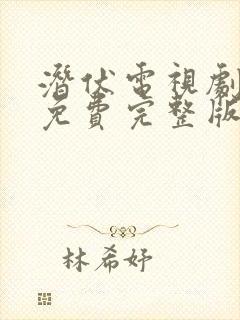 潛伏電視劇
免費完整版
林希妤